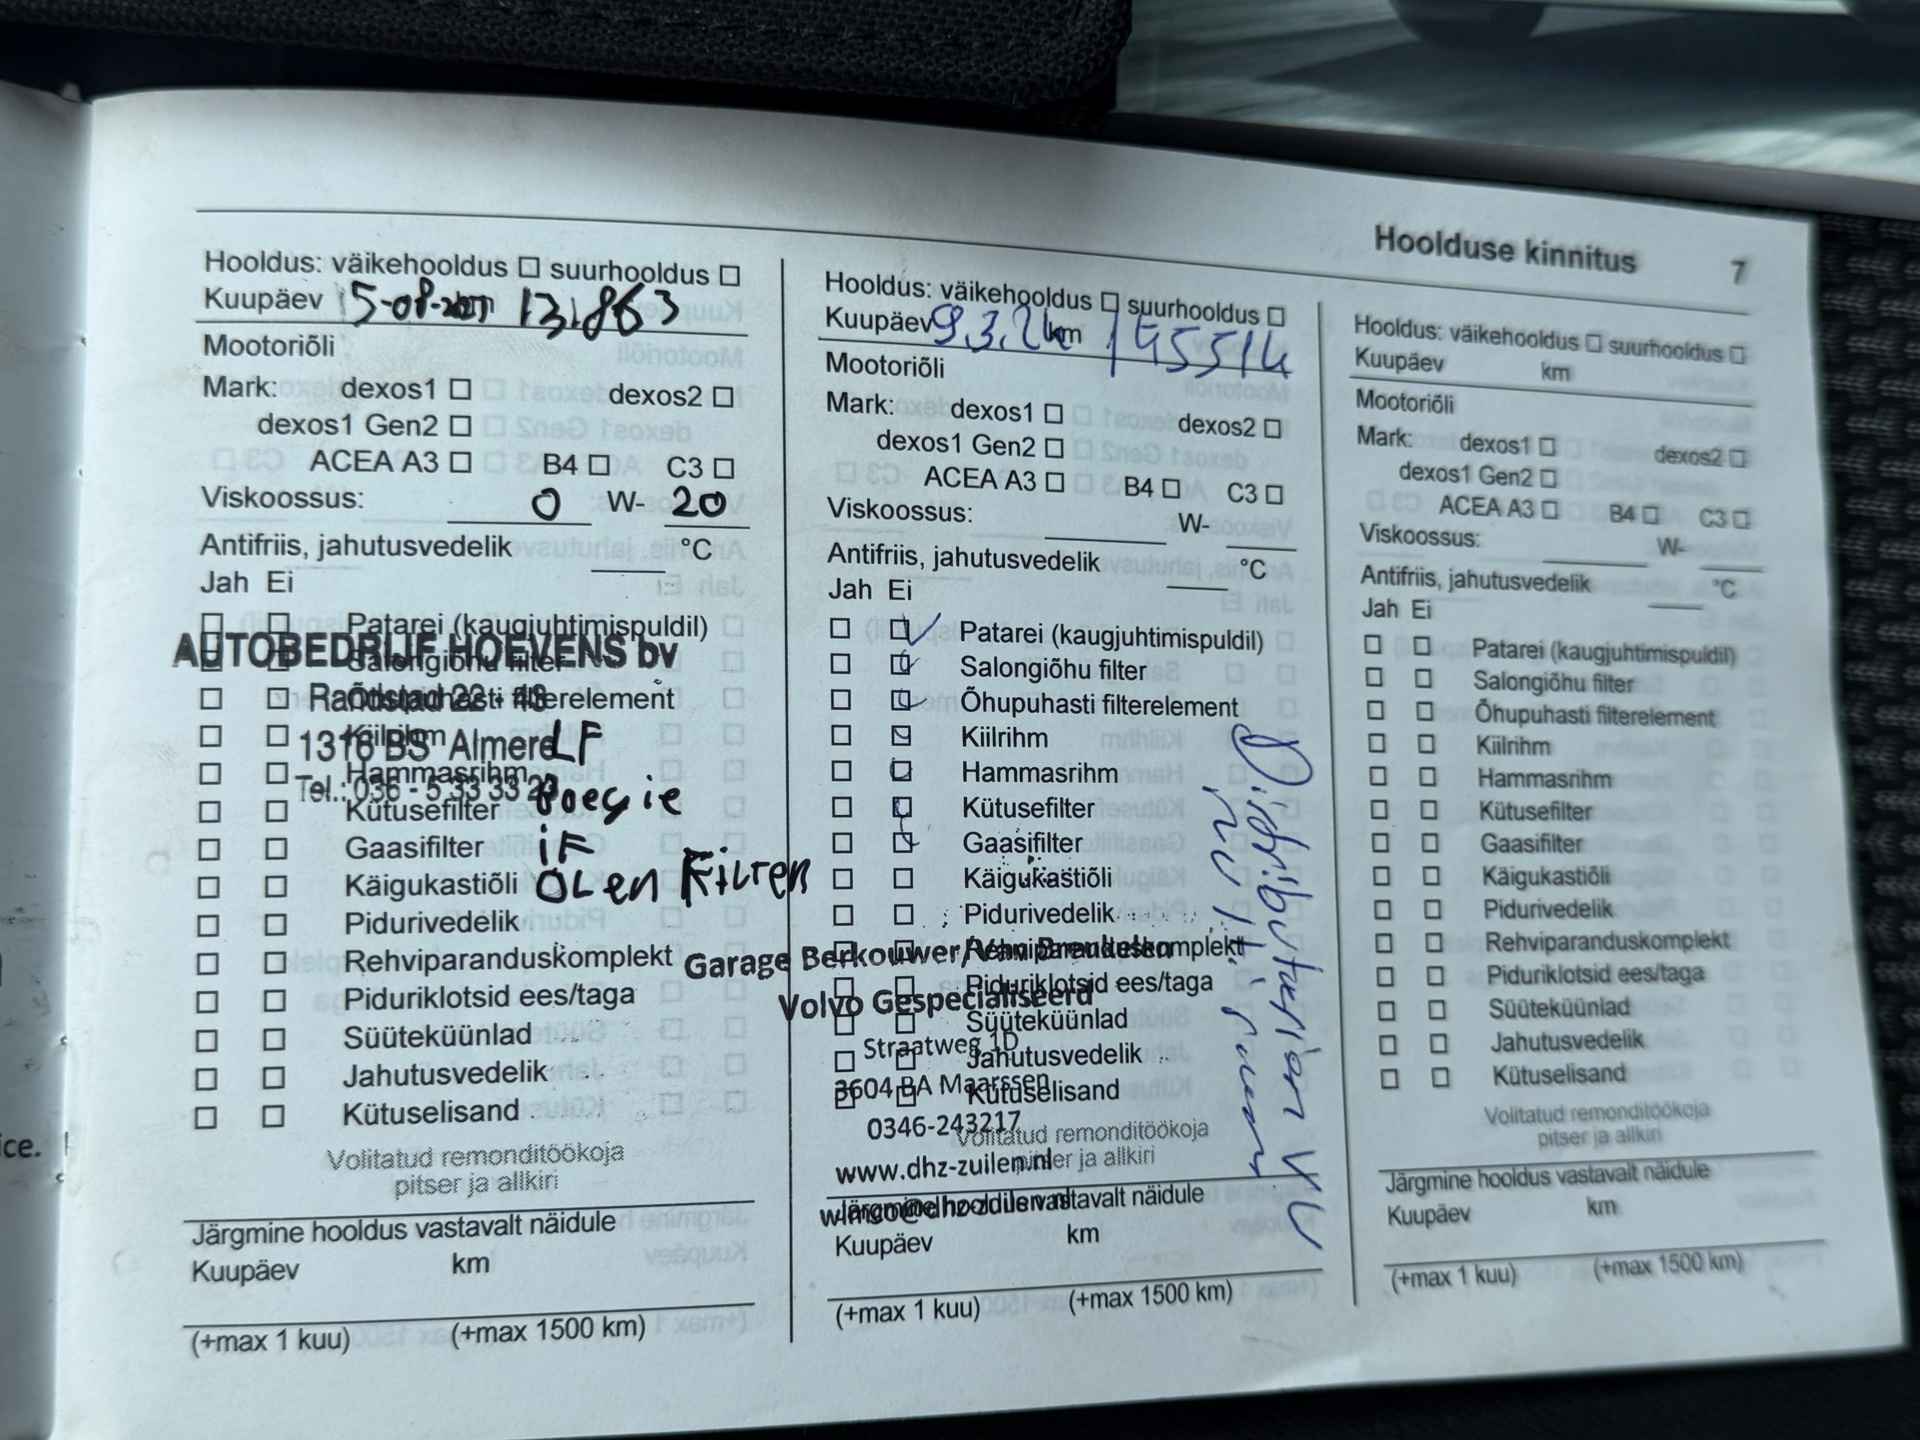 Hoolduse kinnitus 7
Hooldus: väikehooldus ☐ suurhooldus ☐
Kuupäev 15-08- 131863
Mootoriõli
Mark: dexos1 ☐ dexos2 ☐
dexos1 Gen2 ☐
ACEA A3 ☐ B4 ☐ C3 ☐
Viskoossus: 0 W- 20
Antifriis, jahutusvedelik °C
Jah Ei
Patarei (kaugjuhtimispuldil)
AUTOBEDRIJF HOEVENS bv
Salongiõhu filter
Randstad 22 - 48
Õhupuhasti filterelement
1316 BS Almere LF
Hammasrihm
Tel.: 036 - 5 33 33
Kütusefilter
Gaasifilter
Käigukastiõli OLEN FILTER
Pidurivedelik
Rehviparanduskomplekt
Piduriklotsid ees/taga
Süüteküünlad
Jahutusvedelik
Kütuselisand
Volitatud remonditöökoja
pitser ja allkiri
Järgmine hooldus vastavalt näidule
Kuupäev km
(+max 1 kuu) (+max 1500 km)
Hooldus: väikehooldus ☐ suurhooldus ☐
Kuupäev 9.3.2 km 145514
Mootoriõli
Mark: dexos1 ☐ dexos2 ☐
dexos1 Gen2 ☐
ACEA A3 ☐ B4 ☐ C3 ☐
Viskoossus: W-
Antifriis, jahutusvedelik °C
Jah Ei
Patarei (kaugjuhtimispuldil)
Salongiõhu filter
Õhupuhasti filterelement
Kiilrihm
Hammasrihm
Kütusefilter
Gaasifilter
Käigukastiõli
Pidurivedelik
Rehviparanduskomplekt
Garage Berkouwer/Van Breukelen
Piduriklotsid ees/taga
Volvo Gespecialiseerd
Süüteküünlad
Straatweg 1D
Jahutusvedelik
3604 BA Maarssen
Kütuselisand
0346-243217
Volitatud remonditöökoja
www.dhz-zuilen.nl
pitser ja allkiri
Järgmine hooldus vastavalt näidule
wimco@dhz-zuilen.nl
Kuupäev km
(+max 1 kuu) (+max 1500 km)
Distributieriem
Hooldus: väikehooldus ☐ suurhooldus ☐
Kuupäev km
Mootoriõli
Mark: dexos1 ☐ dexos2 ☐
dexos1 Gen2 ☐
ACEA A3 ☐ B4 ☐ C3 ☐
Viskoossus: W-
Antifriis, jahutusvedelik °C
Jah Ei
Patarei (kaugjuhtimispuldil)
Salongiõhu filter
Õhupuhasti filterelement
Kiilrihm
Hammasrihm
Kütusefilter
Gaasifilter
Käigukastiõli
Pidurivedelik
Rehviparanduskomplekt
Piduriklotsid ees/taga
Süüteküünlad
Jahutusvedelik
Kütuselisand
Volitatud remonditöökoja
pitser ja allkiri
Järgmine hooldus vastavalt näidule
Kuupäev km
(+max 1 kuu) (+max 1500 km)
ice.